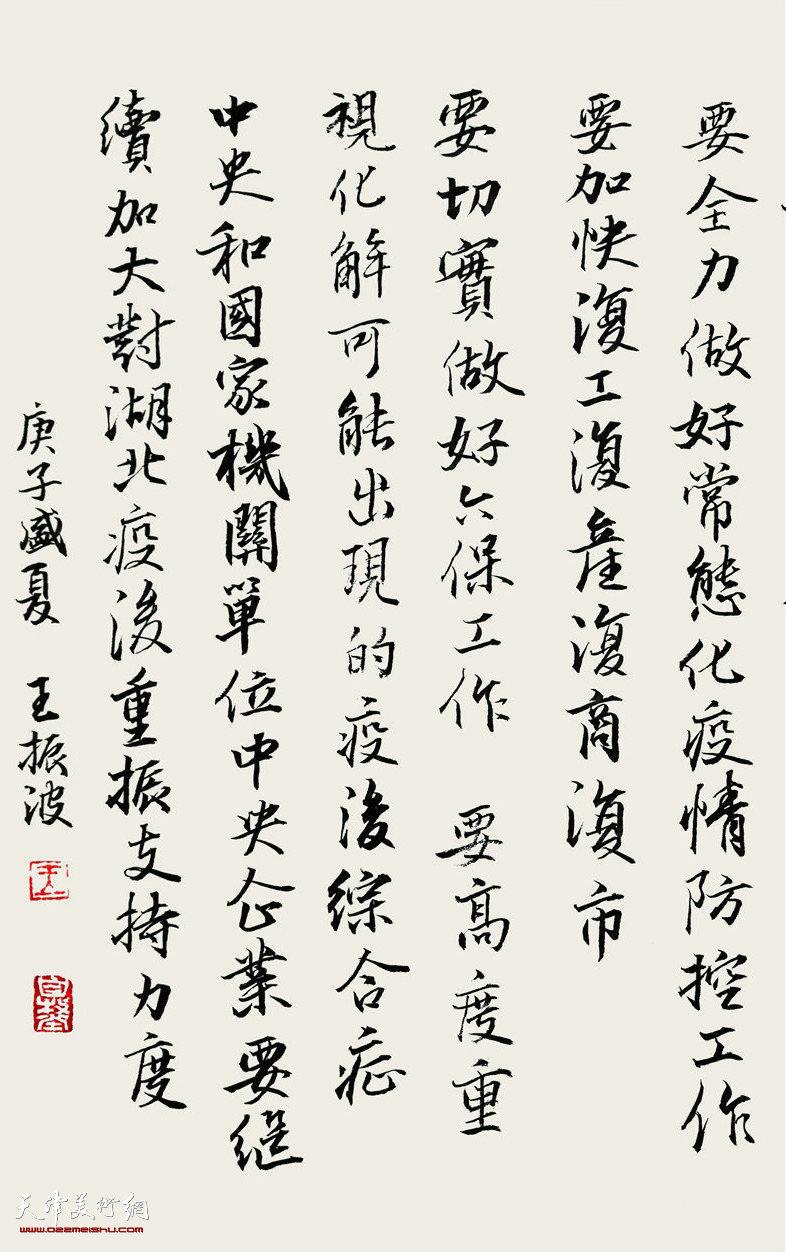 要全力做好常態化疫情防控工作
要加快復工復產復商復市
要切實做好六保工作 要高度重
視化解可能出現的疫後綜合症
中央和國家機關單位中央企業要继
續加大對湖北疫後重振支持力度
庚子盛夏 王振波
天津美術網
www.022meishu.com